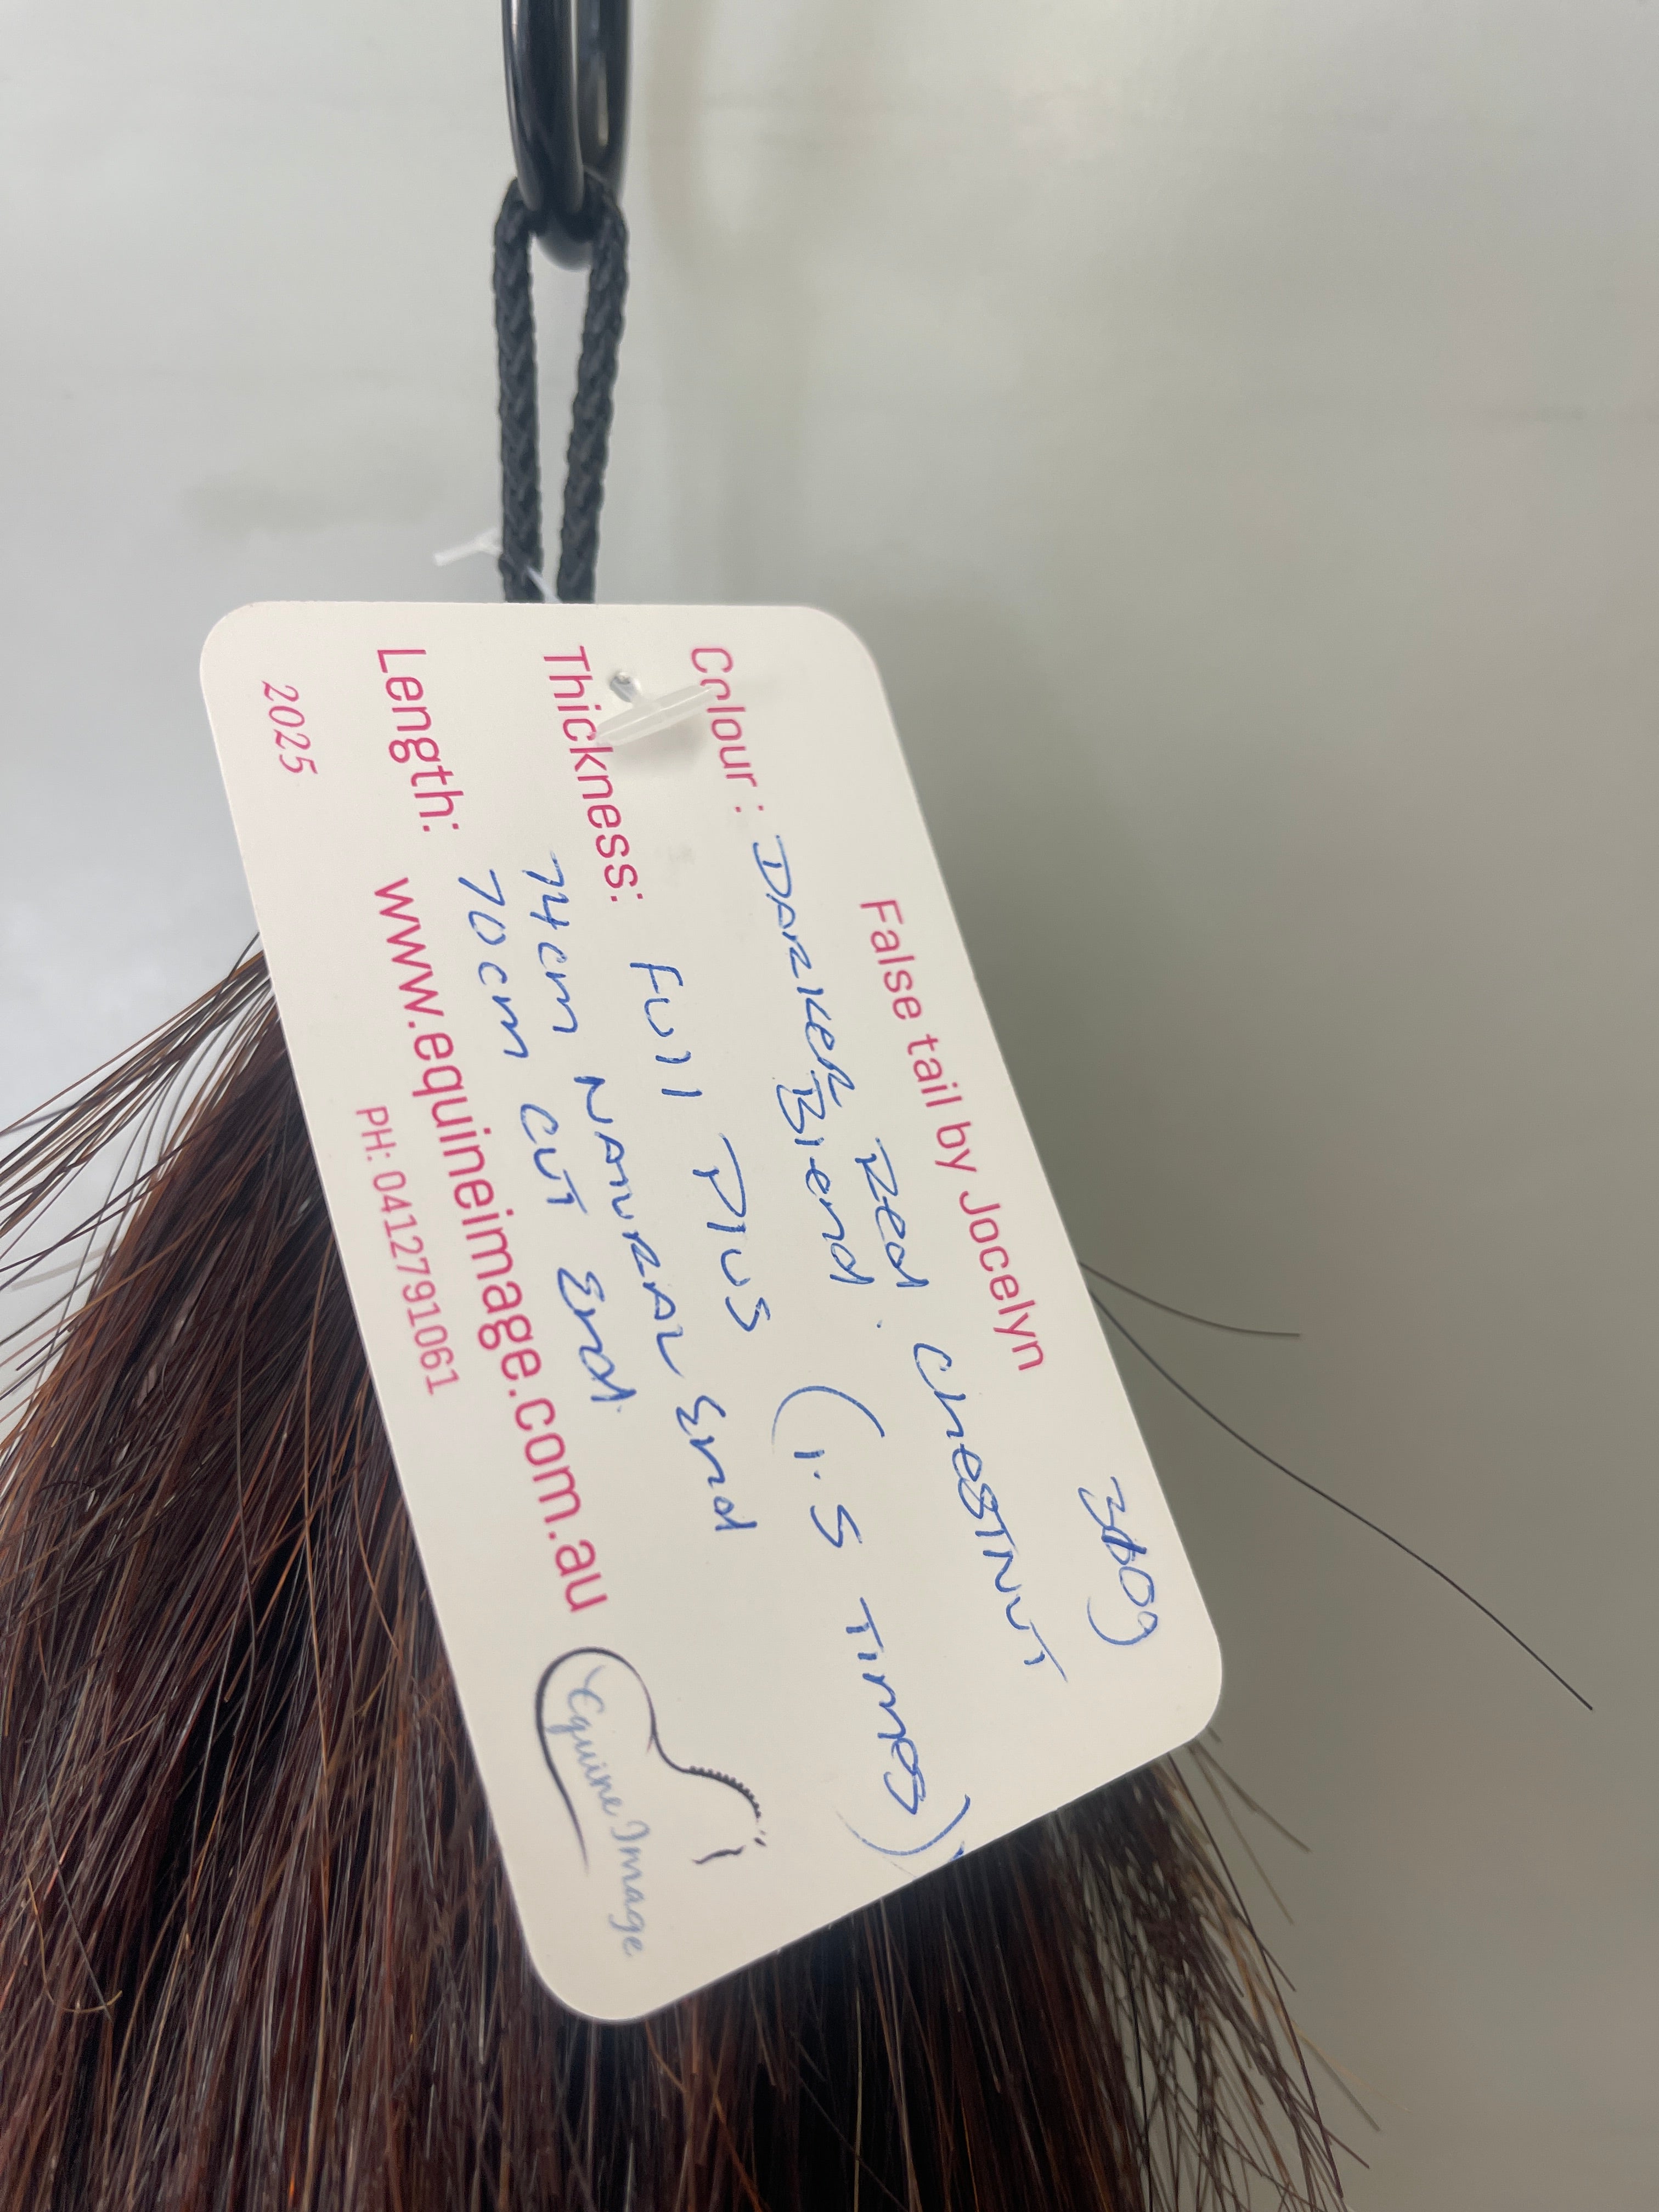 False tail by Jocelyn
Colour: DARKER Red CHESTNUT
Blend.
Thickness: Full Plus (1.5 Times)
74cm NATURAL End
Length: 70cm CUT End
www.equineimage.com.au
2025
PH: 0412791061
Equine Image